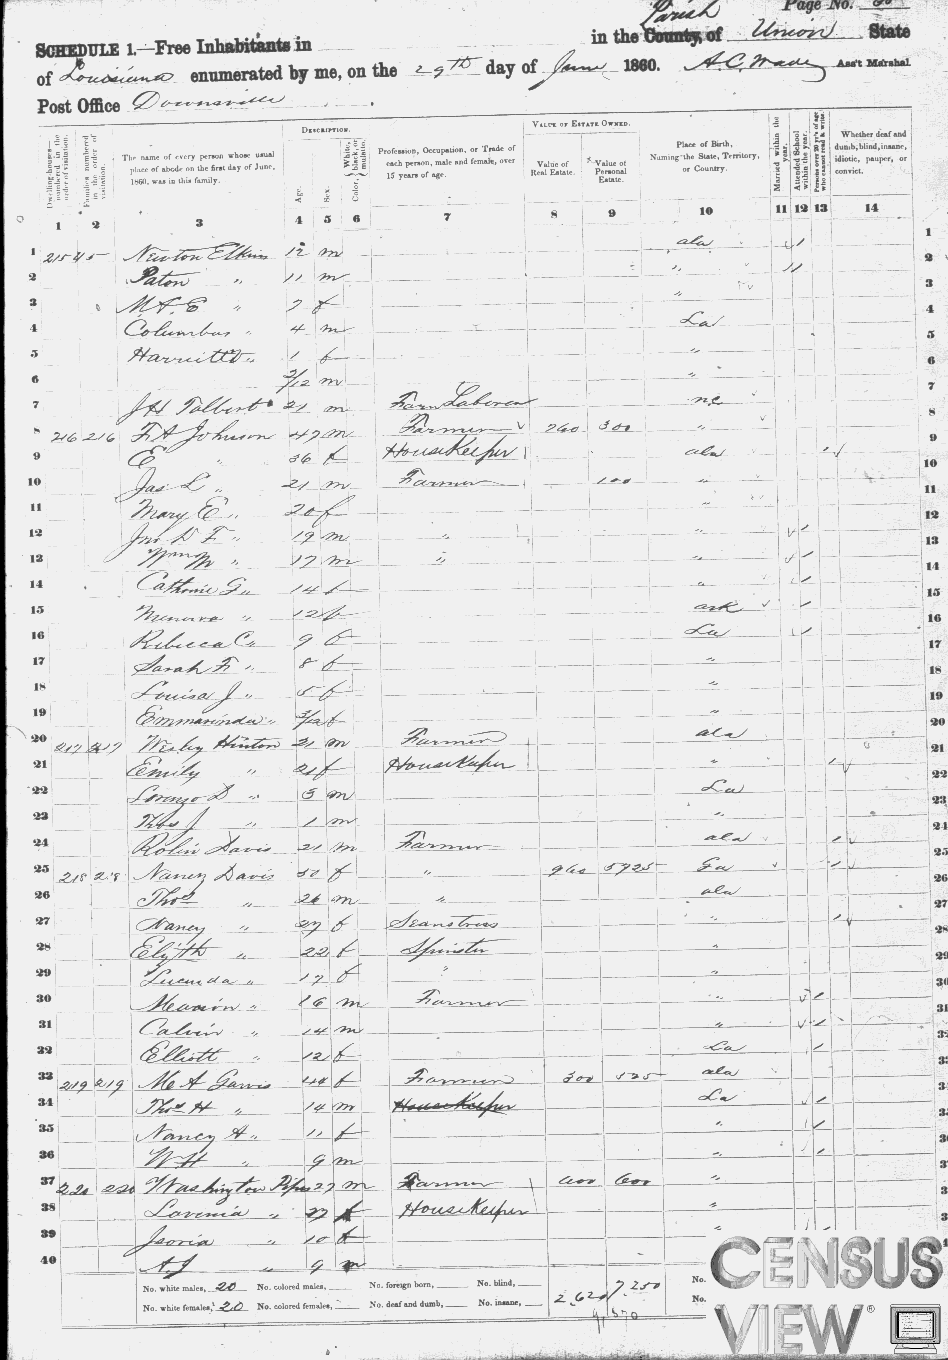 Page No.
SCHEDULE 1.—Free Inhabitants in in the County, of Parish Union State
of Louisiana enumerated by me, on the 29th day of June 1860. A.C. Wade Ass't Marshal.
Post Office Downsville
Dwelling-houses—numbered in the order of visitation. Families numbered in the order of visitation. The name of every person whose usual place of abode on the first day of June, 1860, was in this family. DESCRIPTION. Age. Sex. Color, White, black, or mulatto. Profession, Occupation, or Trade of each person, male and female, over 15 years of age. VALUE OF ESTATE OWNED. Value of Real Estate. Value of Personal Estate. Place of Birth, Naming the State, Territory, or Country. Married within the year. Attended School within the year. Persons over 20 y'rs of age who cannot read & write. Whether deaf and dumb, blind, insane, idiotic, pauper, or convict.
1 2 3 4 5 6 7 8 9 10 11 12 13 14
1 215 45 Newton Elkins 12 m ala /
2 Paton " 11 m " /
3 M.A.E " 7 f "
4 Columbus " 4 m La
5 Harriett " 1 f "
6 2/12 m "
7 J H Talbert 21 m Farm Laborer nc
8 216 216 F A Johnson 47 m Farmer 760 300 "
9 E " 36 f HouseKeeper ala /
10 Jas L " 21 m Farmer 100 "
11 Mary E " 20 f "
12 Jno D F " 19 m " " /
13 Wm M " 17 m " " /
14 Cathrine G " 14 f " /
15 Minerva " 12 f ark /
16 Rebecca C " 9 f La /
17 Sarah F " 8 f "
18 Louisa J " 5 f "
19 Emmarinda " 3/12 f "
20 217 217 Wesley Hinton 21 m Farmer ala
21 Emily " 21 f HouseKeeper " /
22 Lorenzo D " 3 m La
23 Thos J " 1 m "
24 Robin Davis 21 m Farmer ala /
25 218 218 Nancy Davis 50 f " 960 5925 Ga /
26 Thos " 26 m " ala
27 Nancy " 27 f Seanstress " /
28 " 22 f Spinster "
29 Lucinda " 17 f " "
30 " 16 m Farmer " /
31 Calvin " 14 m " /
32 Elliott " 12 f La /
33 219 219 44 f Farmer 300 525 ala
34 Thos H " 14 m HouseKeeper La /
35 Nancy A " 11 f " /
36 W H " 9 m " /
37 220 220 Washington 27 m Farmer 600 600 "
38 Lavenia " 27 f HouseKeeper "
39 " 10 f "
40 A J " 9 m
No. white males, 20 No. colored males, No. foreign born, No. blind, 2,620 7250 No.
No. white females, 20 No. colored females, No. deaf and dumb, No. insane, No.
CENSUS
VIEW®